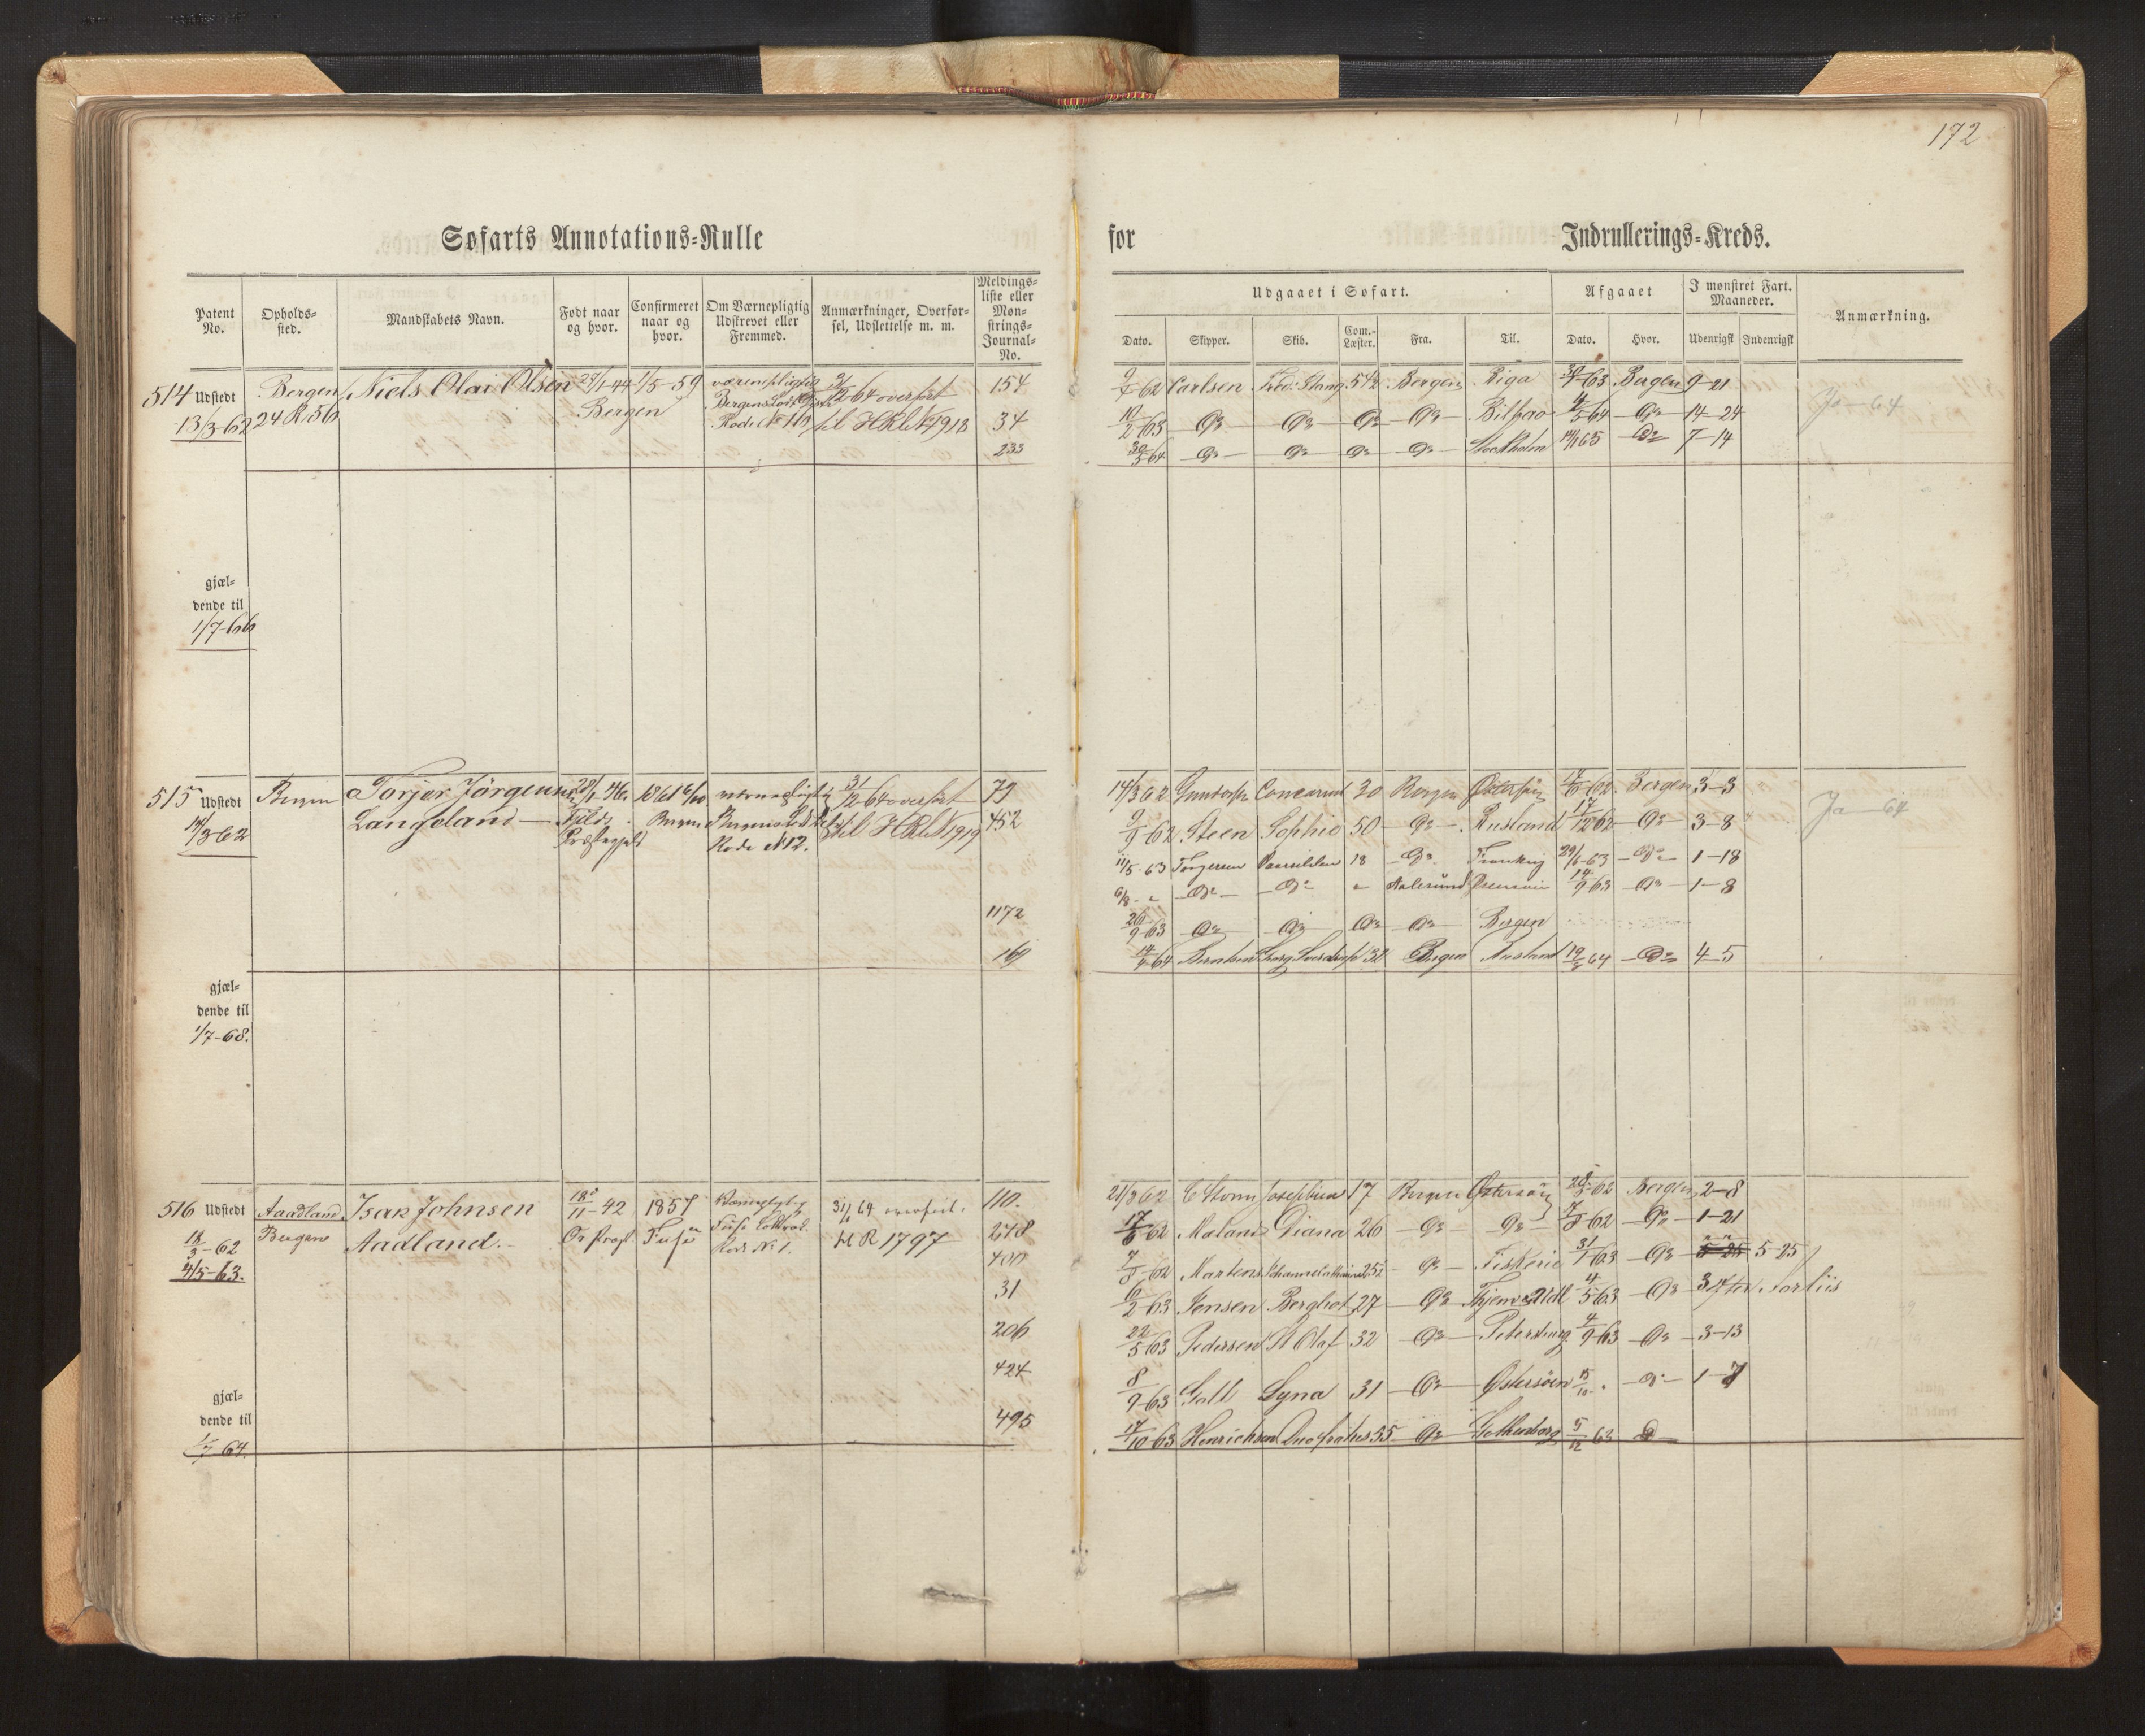 172
Søfarts Annotations-Rulle for Indrullerings-Kreds.
Patent No.
Opholds-sted.
Mandskabets Navn.
Født naar og hvor.
Confirmeret naar og hvor.
Om Værnepligtig Udskrevet eller Fremmed.
Anmærkninger, Overførsel, Udslettelse m. m.
Meldings-liste eller Mønstrings-Journal-No.
Udgaaet i Søfart.
Dato. Skipper. Skib. Com.-Læster. Fra. Til.
Afgaaet
Dato. Hvor.
I mønstret Fart. Maaneder.
Udenrigsk Indenrigsk
Anmærkning.
514 Udstedt Bergen Niels Olai Olsen 29/1-44 1/5-59 værnepligtig 31/12 64 overført 154
13/3-62 24 R. 56 Bergen Bergens Rode No 16 til HRl No 1918 34
233
9/4-62 Carlsen Fred: Stang 54½ Bergen Riga 30/1-63 Bergen 9-21
10/2-63 Do Do Do Do Bilbao 4/5-64 Do 14-24 Ja - 64
30/5-64 Do Do Do Do Stockholm 14/1 65 Do 7-14
gjæl-
dende til
1/7-66
515 Udstedt Bergen Torjer Jörgensen 28/1-46 1861 værnepligtig 31/12-64 overført 79
14/3 62 Langeland Bergen Rode No 12. til HRl No 1919 452
1172
169
14/3 62 Concurent 30 Bergen Østersøen Bergen 3-3
9/9 62 Steen Sophie 50 Do Rusland 17/12 62 Do 3-8 Ja - 64
11/5 63 Torgersen 18 Do 29/6-63 Do 1-18
6/8 - " Do Do " Aalesund 14/9 63 Do 1-8
26/9-63 Do Do Do Do Bergen
14/4-64 Berntsen Bergen Rusland 19/9 64 Do 4-5
gjæl-
dende til
1/7-68.
516 Udstedt Aadland Isak Johnsen 18/11-42 1857 Værnepligtig overført 110.
18/3-62 Bergen Aadland. Os Præstgj. Fuse Rode No 1. til R 1797 278
4/5-63. 400
31
206
424
495
21/3 62 C Storm Josephine 17 Bergen Østersøen Bergen 2-8
17/6 62 Maland Diana 26 Do Do 7/8 62 Do 1-21
7/8 62 Martens 25½ Do Fiskerie 31/1 63 Do 5-25
6/2-63 Jensen Berglíot 27 Do 4/5 63 Do
22/5 63 Pedersen St Olaf 32 Do Petersburg 4/9 63 Do 3-13
8/9-63 Galt Lyna 31 Do Østersøen 15/10 " Do 1-7
17/10 63 Henrichsen Duo fratres 55 Do Gothenborg 5/12 63 Do
gjæl-
dende til
1/7-64.